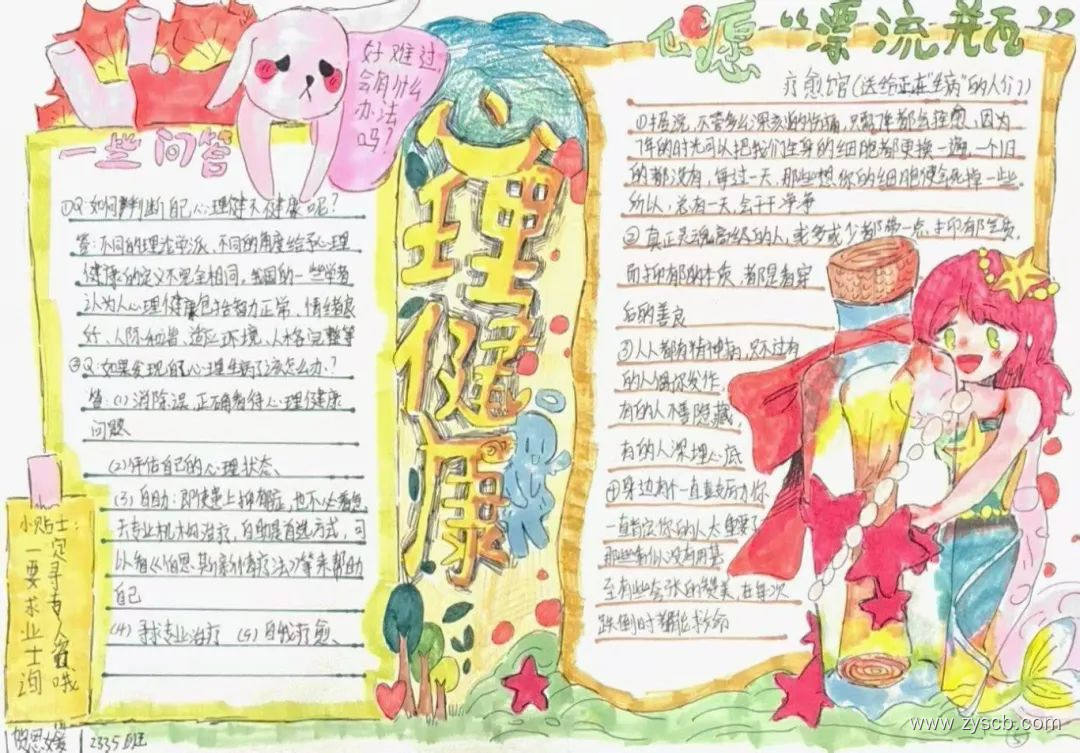 好难过
会有什么
办法
吗?
一些问答
①Q:如何判断自己心理健不健康呢?
答:不同的理论学派,不同的角度给予心理
健康的定义不完全相同。我国的一些学者
认为人心理健康包括智力正常、情绪良
好、人际和谐、适应环境、人格完整等
②Q:如果发现自己心理生病了该怎么办?
答:(1)消除误,正确看待心理健康
问题
(2)评估自己的心理状态、
(3)自助:即使患上抑郁症,也不必着急
去专业机构治疗,自助是首选方式,可
以看《伯恩斯新情绪疗法》等来帮助
自己
(4)寻求专业治疗 (5)自我疗愈、
小贴士:
一定要寻求专业人士咨询哦
2335班
心理健康
心愿“漂流瓶”
疗愈馆(送给正在“生病”的人们)
①据说,不管多么深刻的伤痛,只要7年都会痊愈,因为
7年的时光可以把我们全身的细胞都更换一遍,一个旧
的都没有,每过一天,那些想你的细胞便会死掉一些。
所以,总有一天,会干干净净
②真正灵魂高级的人,或多或少都带一点忧郁气质,
而忧郁的本质,都是看穿
后的善良
③人人都有精神病,只不过有
的人偶尔发作,
有的人善隐藏,
有的人深埋心底
④身边有一直鼓励你
一直肯定你的人太重要了
那些看似没有用甚
至有些夸张的赞美,在每次
跌倒时都能救命
www.zyscb.com